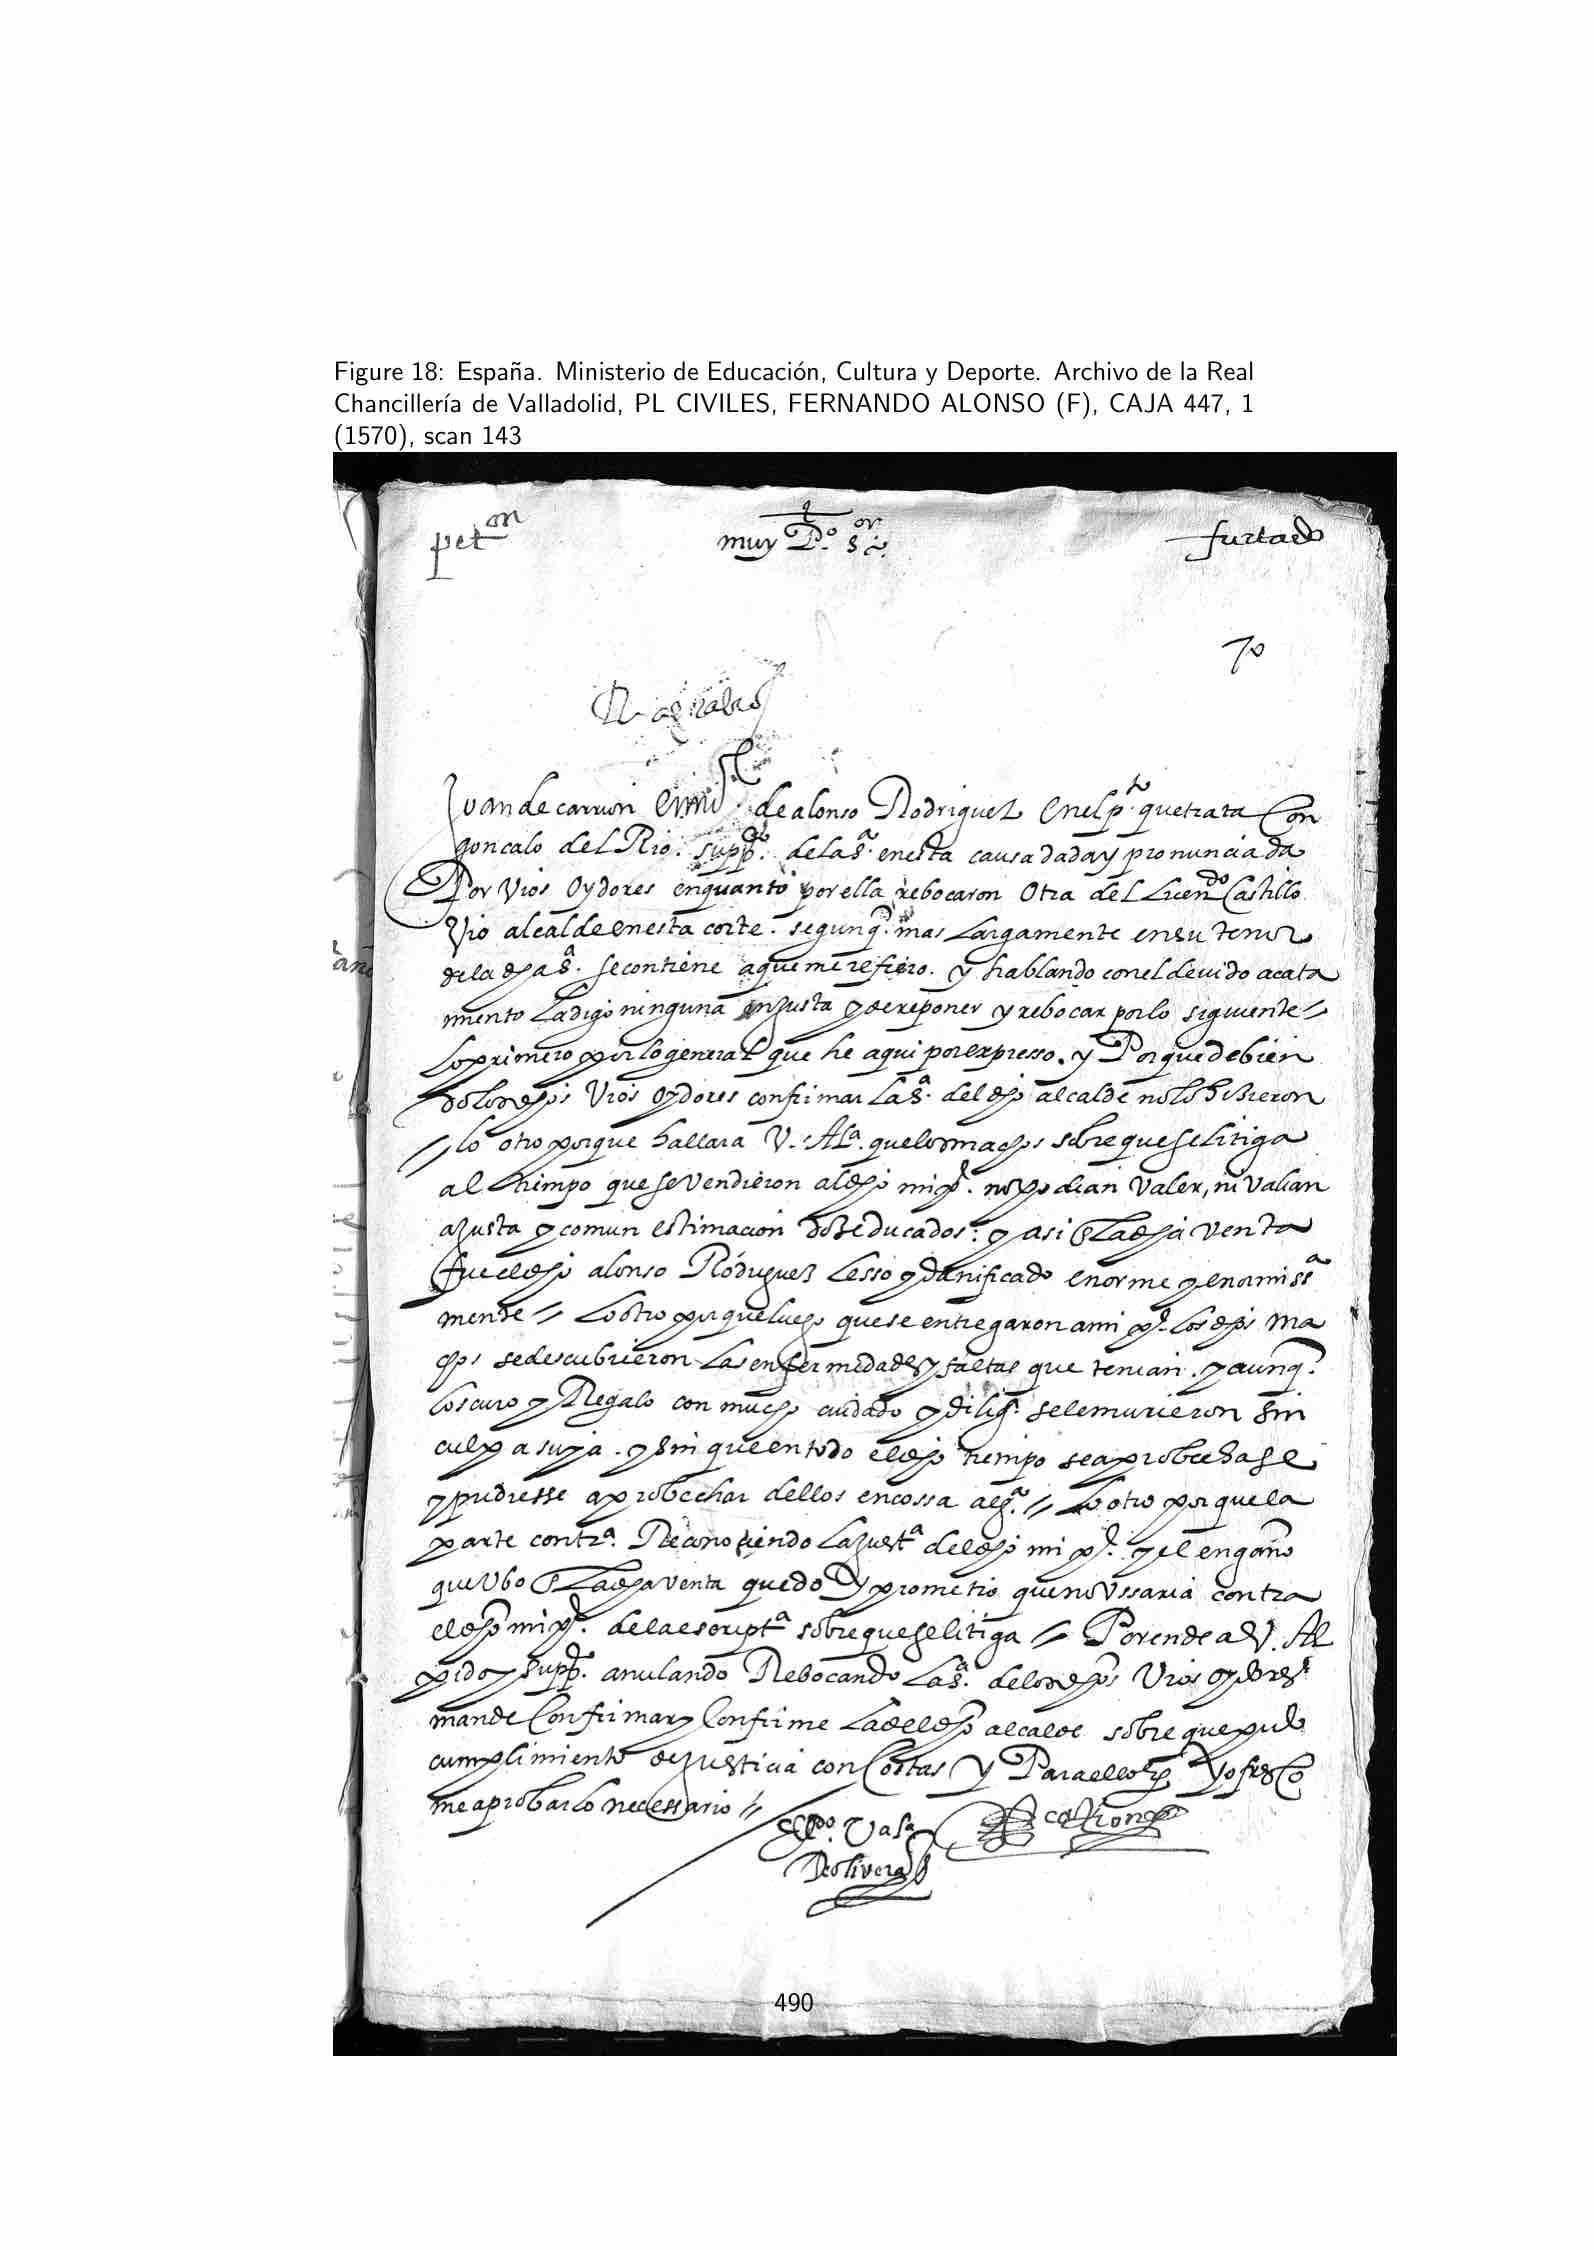 Figure 18: España. Ministerio de Educación, Cultura y Deporte. Archivo de la Real
Chancillería de Valladolid, PL CIVILES, FERNANDO ALONSO (F), CAJA 447, 1
(1570), scan 143
pet on
muy P.º S or
furtado
70
Juan de carrion en nu de alonso Rodriguez en el p to que trata Con
goncalo del Rio. supp co. de la s.ª en esta causa dada y pronuncia da
Por Vros Oydores en quanto por ella rebocaron Otra del Licen do Castillo
Vro alcalde en esta corte. segun q. mas Largamente en su tenor
de la dha s.ª se contiene a que me refiero. y hablando con el devido acata
miento La digo ninguna injusta y de reponer y rebocar por lo siguiente
Lo primero por lo general que he aqui por expresso. y Por que debien
do los dhos Vros oydores confirmar La s.ª del dho alcalde no lo hizieron
lo otro porque hallara V. Al.ª que los machos sobre que se litiga
al tiempo que se vendieron al dho mi p.e no podian valer, ni valian
a justa y comun estimacion doze ducados. y asi La dha venta
fue el dho alonso Rodriguez Lesso y danificado enorme y enormiss.ª
mente Lo otro por que luego que se entregaron a mi p.e Los dhos ma
chos se descubrieron Las enfermedades y faltas que tenian. y aunq.
Los curo y Regalo con mucho cuidado y dilig.ª se le murieron sin
culpa suya. y sin que en todo el dho tiempo se aprobechase
y pudiesse aprobechar dellos en cossa alg.ª Lo otro por que la
parte contr.ª Reconosciendo La just.ª del dho mi p.e y el engaño
que Vbo La dha venta quedo y prometio que no Vssaria contra
el dho mi p.e de la escript.ª sobre que se litiga Por ende a V. Al
pido y supp.co anulando Rebocando La s.ª de los dhos Vros oydores
mande Confirmar y Confirme La del dho alcalde sobre que pido
cumplimiento de justicia con Costas y Para ello Yofrezco
me a probar lo necessario
El l.do Vasª
carrion
De olivera
490